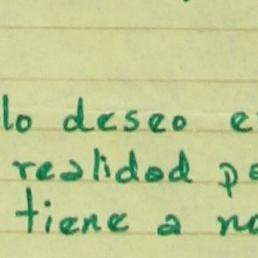 lo deseo e
realidad pe
tiene a no